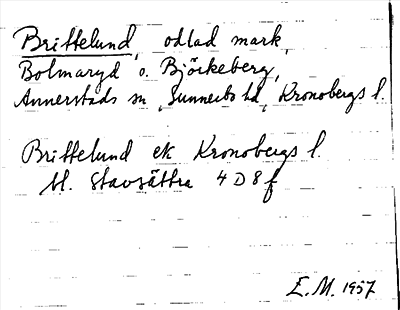 Brittelund, odlad mark,
Bolmaryd o. Björkeberg,
Annerstads sn, Sunnerbo hd, Kronobergs l.
Brittelund ek Kronobergs l.
bl. Stavsättra 4 D 8 f
E.M. 1957